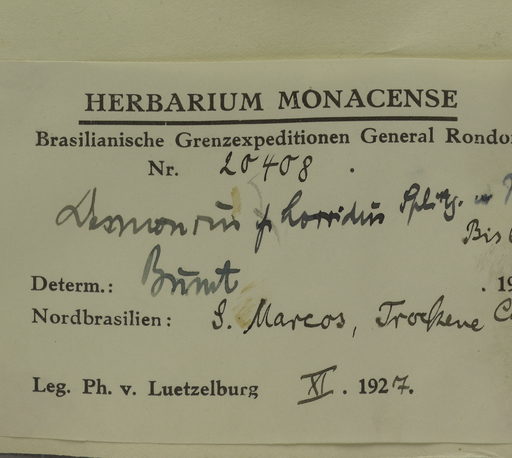 HERBARIUM MONACENSE
Brasilianische Grenzexpeditionen General Rondo
Nr. 20408.
Desmoncus horridus Splitg.
Bis
Determ.: Burret . 19
Nordbrasilien: S. Marcos, Trockene
Leg. Ph. v. Luetzelburg XI. 1927.